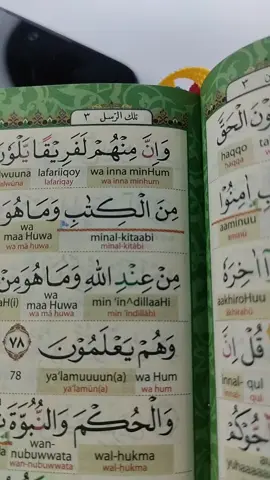 تلك الرسل ٣
وَاِنَّ مِنْهُمْ لَفَرِيْقًا يَّلْوٗنَ
wuuna lafariiqoy wa inna minHum
alwūna lafarīqay wa inna minhum
مِنَ الْكِتٰبِ وَمَا هُوَ
wa maa Huwa minal-kitaabi
wa mā huwa minal-kitābi
مِنْ عِنْدِ اللّٰهِ وَمَا هُوَ مِنْ
aH(i) wa maa Huwa min 'in^dillaaHi
wa mā huwa min 'indillāhi
وَهُمْ يَعْلَمُوْنَ ٧٨
78 ya'lamuuun(a) wa Hum
ya'lamūn(a) wa hum
وَالْحُكْمَ وَالنُّبُوَّةَ
wan-nubuwwata wal-hukma
wan-nubuwwata wal-ḥukma
٣
وْنَ الْحَقَّ
haqqo
ḥaqqa
اٰمِنُوْا
aaminuu
āminū
اٰخِرَهٗ
aakhiroHuu
ākhirahū
قُلْ اِنَّ
innal- qul
innal- qul